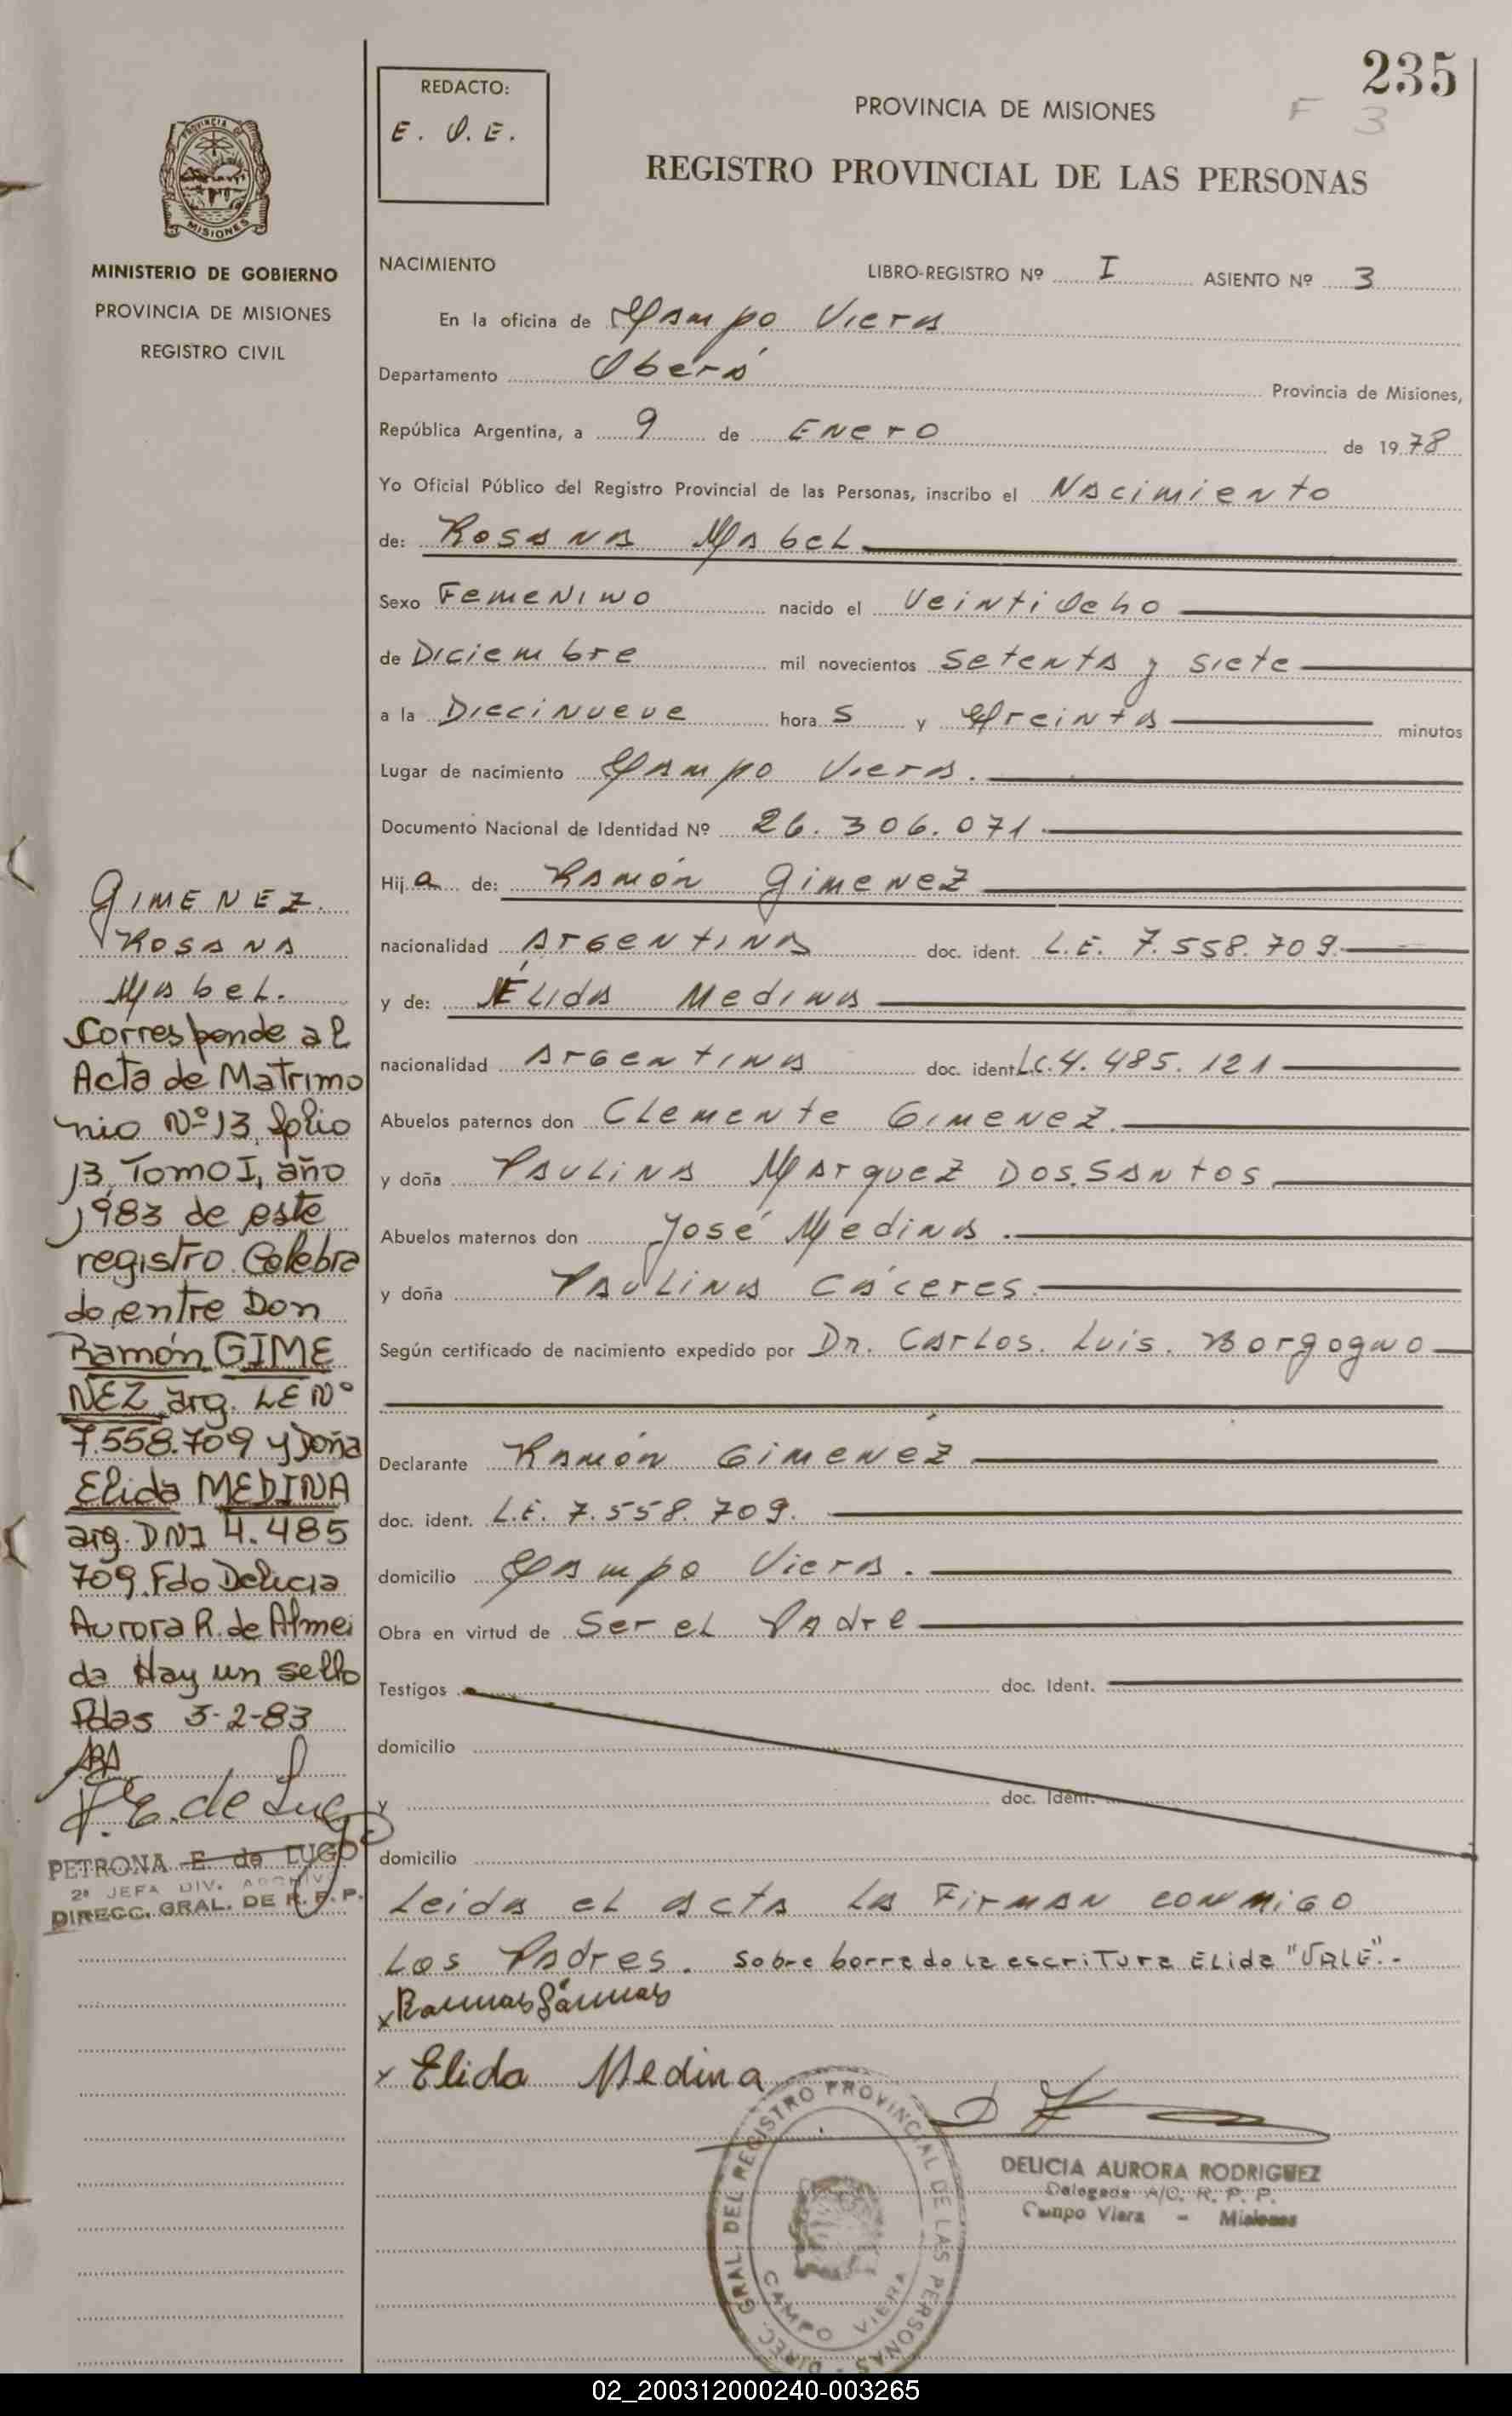 235
F 3
REDACTO:
E. O. E.
PROVINCIA DE MISIONES
REGISTRO PROVINCIAL DE LAS PERSONAS
PROVINCIA
MISIONES
MINISTERIO DE GOBIERNO
PROVINCIA DE MISIONES
REGISTRO CIVIL
NACIMIENTO
LIBRO-REGISTRO Nº I ASIENTO Nº 3
En la oficina de Campo Viera
Departamento Oberá Provincia de Misiones,
República Argentina, a 9 de Enero de 1978
Yo Oficial Público del Registro Provincial de las Personas, inscribo el Nacimiento
de: Rosana Mabel
Sexo Femenino nacido el Veintiocho
de Diciembre mil novecientos Setenta y siete
a la Diecinueve hora s y Treinta minutos
Lugar de nacimiento Campo Viera.
Documento Nacional de Identidad Nº 26.306.071
Hij a de: Ramón Gimenez
nacionalidad Argentina doc. ident. L.E. 7.558.709.
y de: Élida Medina
nacionalidad Argentina doc. ident L.C. 4.485.121
Abuelos paternos don Clemente Gimenez.
y doña Paulina Marquez Dos Santos.
Abuelos maternos don José Medina.
y doña Paulina Cáceres.
Según certificado de nacimiento expedido por Dr. Carlos Luis. Borgogno
Declarante Ramón Gimenez
doc. ident. L.E. 7.558.709.
domicilio Campo Viera.
Obra en virtud de Ser el Padre
Testigos doc. Ident.
domicilio
y doc. Ident.
domicilio
Leida el acta la Firman conmigo
Los Padres. Sobre borrado la escritura Elida "VALE".-
x
x Elida Medina
GIMENEZ.
Rosana
Mabel.
Corresponde al
Acta de Matrimo
nio Nº 13, folio
13, Tomo I, año
1983 de este
registro Celebra
do entre Don
Ramón GIME
NEZ arg. LE Nº
7.558.709 y Doña
Elida MEDINA
arg. DNI 4.485
709 Fdo Delicia
Aurora R. de Almei
da Hay un sello
Pdas 3-2-83
P. E. de Lugo
PETRONA E. de LUGO
2ª JEFA DIV. ARCHIVO
DIRECC. GRAL. DE R. P. P.
DIREC. GRAL. DEL REGISTRO PROVINCIAL DE LAS PERSONAS
CAMPO VIERA
DELICIA AURORA RODRIGUEZ
Delegada A/C. R. P. P.
Campo Viera - Misiones
02_200312000240-003265